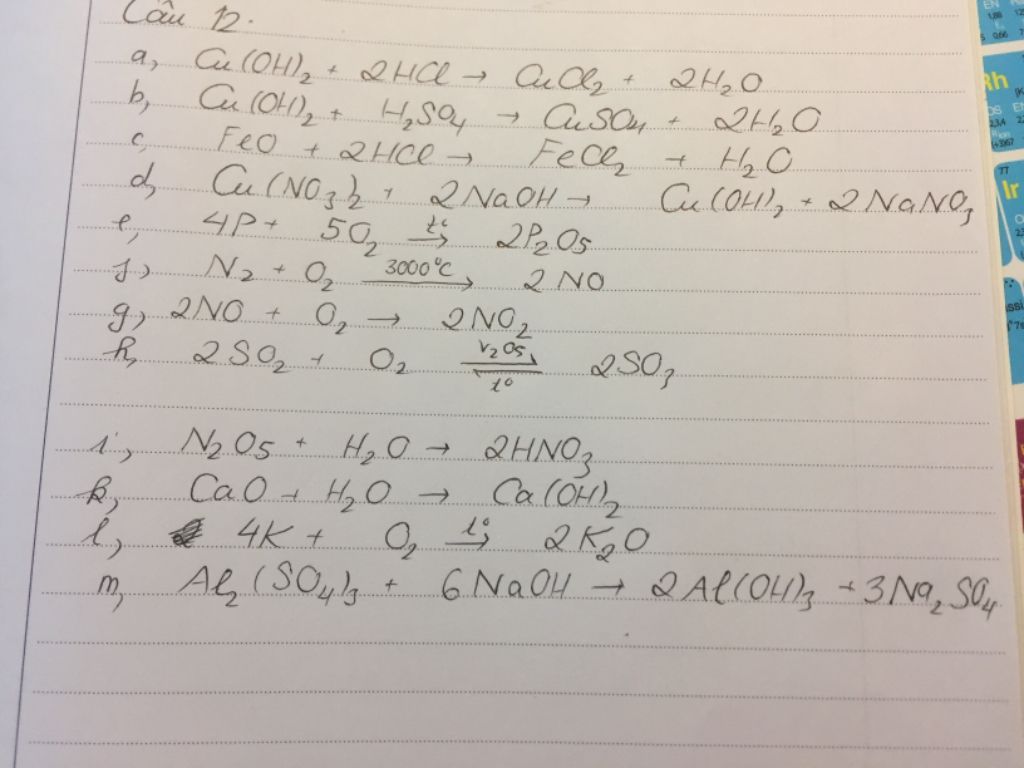 Câu 12.
a, Cu(OH)₂ + 2HCl → CuCl₂ + 2H₂O
b, Cu(OH)₂ + H₂SO₄ → CuSO₄ + 2H₂O
c, FeO + 2HCl → FeCl₂ + H₂O
d, Cu(NO₃)₂ + 2NaOH → Cu(OH)₂ + 2NaNO₃
e, 4P + 5O₂ t° → 2P₂O₅
f, N₂ + O₂ 3000°C → 2NO
g, 2NO + O₂ → 2NO₂
h, 2SO₂ + O₂ V₂O₅ ⇌ t° 2SO₃
i, N₂O₅ + H₂O → 2HNO₃
k, CaO + H₂O → Ca(OH)₂
l, 4K + O₂ t° → 2K₂O
m, Al₂(SO₄)₃ + 6NaOH → 2Al(OH)₃ + 3Na₂SO₄
Rh
77
Ir